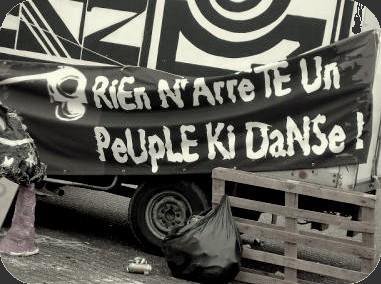 RiEn N'ArreTE Un
PeUpLE Ki DaNSe !